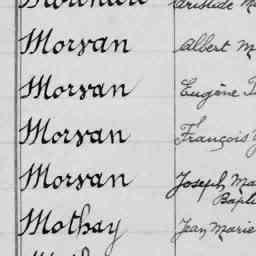 Morvan Albert M
Morvan Eugène
Morvan François
Morvan Joseph Ma
Bapti
Mothay Jean Marie